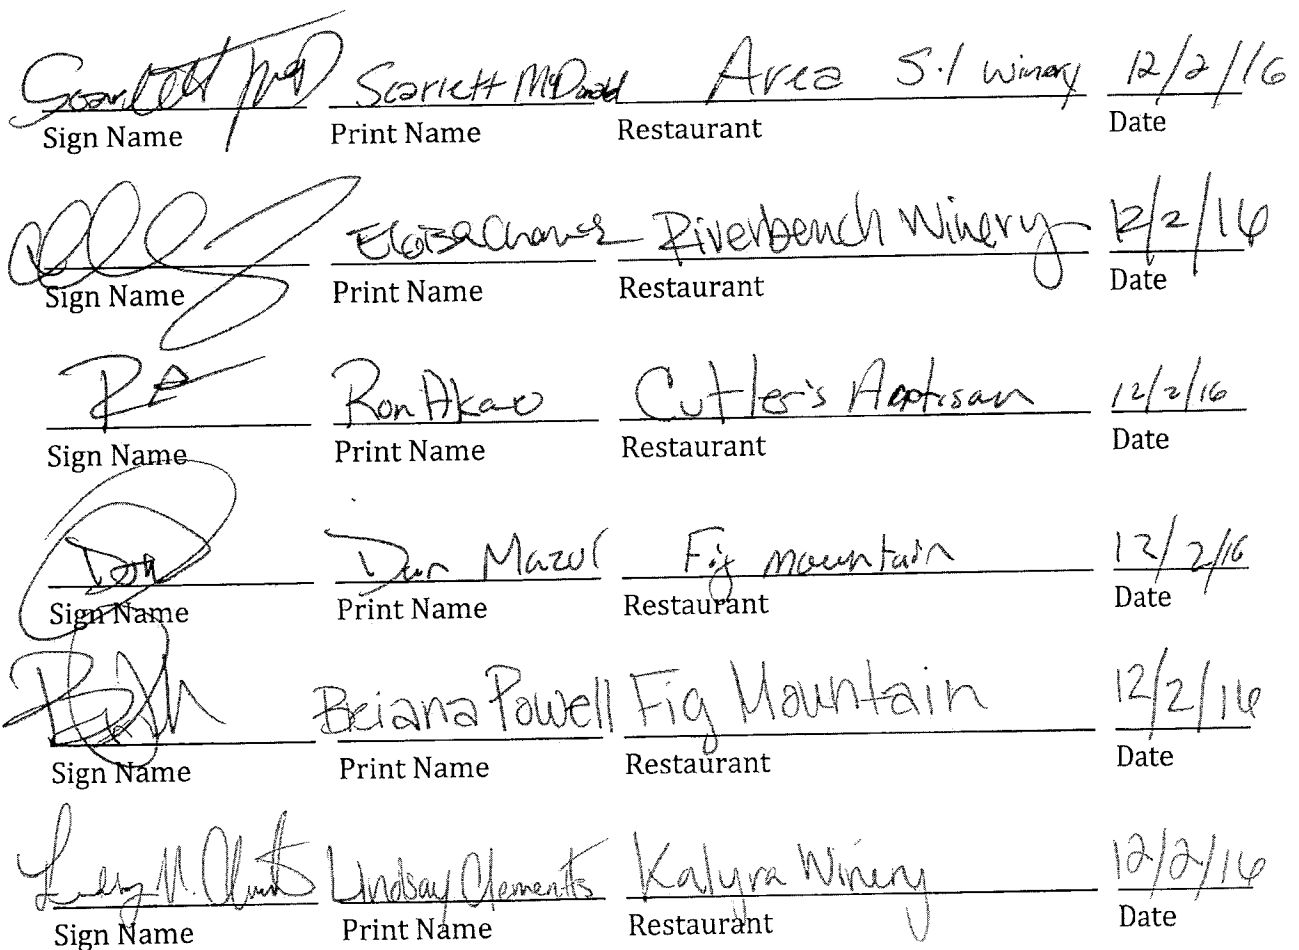 Scarlett McD Scarlett McDonald Area 5.1 Winery 12/2/16
Sign Name Print Name Restaurant Date
Eloisa Chavez Riverbench Winery 12/2/16
Sign Name Print Name Restaurant Date
RA Ron Akao Cutler's Artisan 12/2/16
Sign Name Print Name Restaurant Date
Dan Mazur Fig mountain 12/2/16
Sign Name Print Name Restaurant Date
Briana Powell Fig Mountain 12/2/16
Sign Name Print Name Restaurant Date
Lindsay Clements Kalyra Winery 12/2/16
Sign Name Print Name Restaurant Date